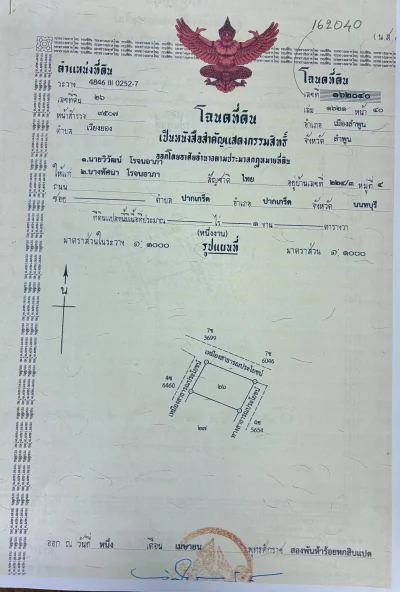 162040
(น.ส.
ตำแหน่งที่ดิน
ระวาง 4846 III 0252-7
เลขที่ดิน ๒๖
หน้าสำรวจ ๗๕๐๗
ตำบล เวียงยอง
โฉนดที่ดิน
เลขที่ ๑๖๒๐๔๐
เล่ม ๑๖๒๑ หน้า ๔๐
อำเภอ เมืองลำพูน
จังหวัด ลำพูน
โฉนดที่ดิน
เป็นหนังสือสำคัญแสดงกรรมสิทธิ์
ออกโดยอาศัยอำนาจตามประมวลกฎหมายที่ดิน
ให้แก่ ๑.นายวิวัฒน์ โรจนอาภา
๒.นางทัศนา โรจนอาภา สัญชาติ ไทย อยู่บ้านเลขที่ ๒๒๔/๓ หมู่ที่ ๔
ถนน
ซอย ตำบล ปากเกร็ด อำเภอ ปากเกร็ด จังหวัด นนทบุรี
ที่ดินแปลงนี้มีเนื้อที่ประมาณ ไร่ ๑ งาน ตารางวา
(หนึ่งงาน)
มาตราส่วนในระวาง ๑: ๑๐๐๐ รูปแผนที่ มาตราส่วน ๑: ๑๐๐๐
น
7ซ
3699
เหมืองสาธารณประโยชน์
7ซ
6046
4ซ
6460
เหมืองสาธารณประโยชน์
๒๖
ทางสาธารณประโยชน์
5654
๒๗
ออก ณ วันที่ หนึ่ง เดือน เมษายน พุทธศักราช สองพันห้าร้อยหกสิบแปด